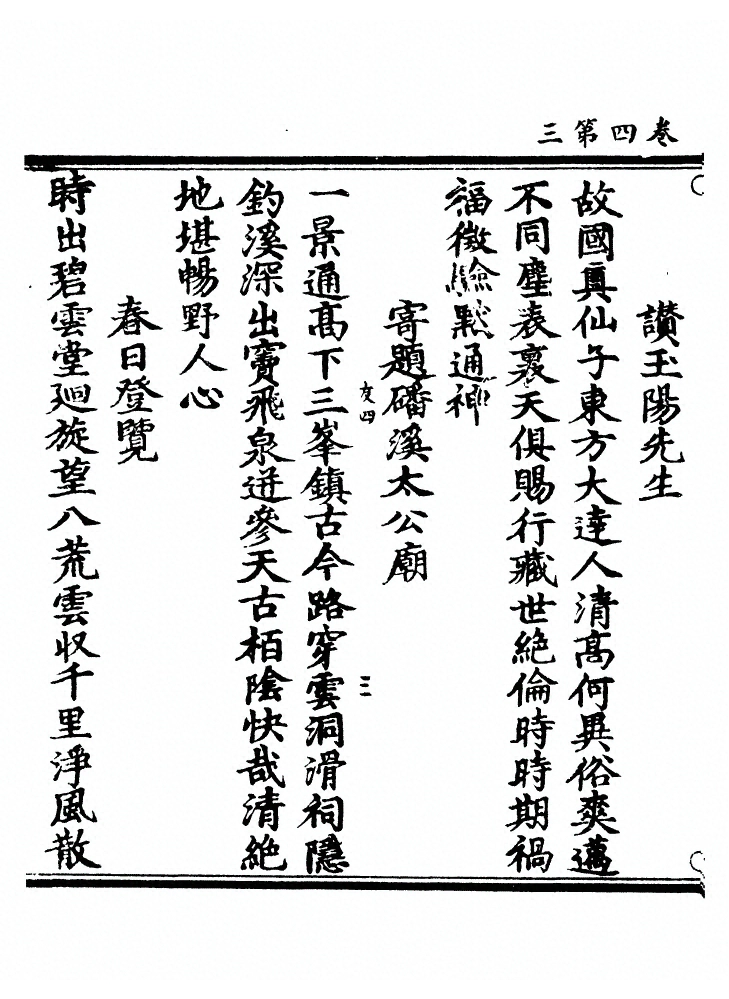 三第四卷
讚玉陽先生
故國真仙子東方大達人清髙何異俗爽邁
不同塵表裏天俱賜行藏世絶倫時時期禍
福徵驗默通神
友四
三
寄題磻溪太公廟
一景通髙下三峯鎮古今路穿雲洞滑祠隱
釣溪深出竇飛泉迸參天古栢陰快哉清絶
地堪暢野人心
春日登覽
時出碧雲堂廻旋望八荒雲収千里淨風散